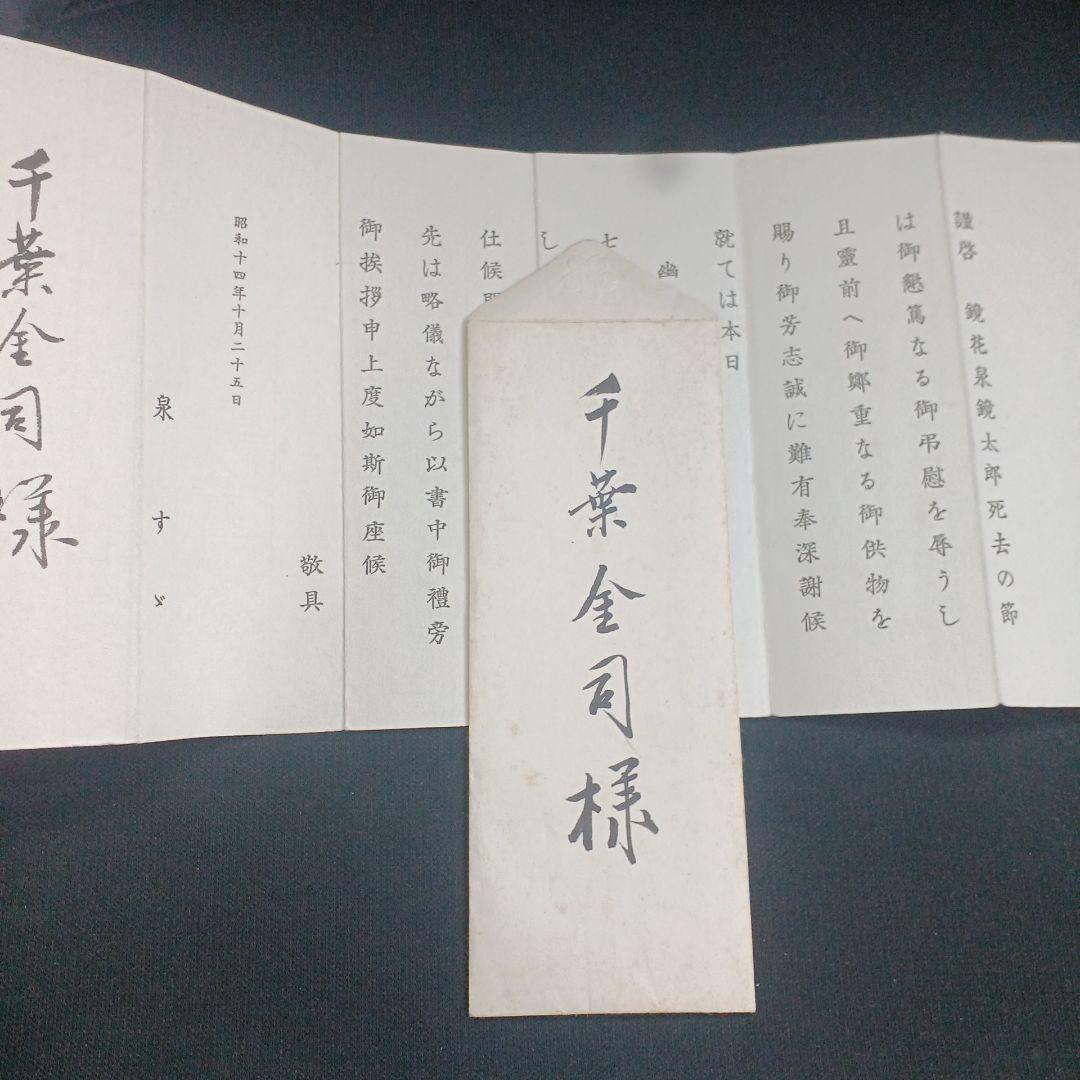 謹啓　鏡花泉鏡太郎死去の節
は御懇篤なる御弔慰を辱うし
且靈前へ御鄭重なる御供物を
賜り御芳志誠に難有奉深謝候
就ては本日
幽
七
し
仕候
先は略儀ながら以書中御禮旁
御挨拶申上度如斯御座候
敬具
昭和十四年十月二十五日
泉すゞ
千葉金司様
千葉金司様